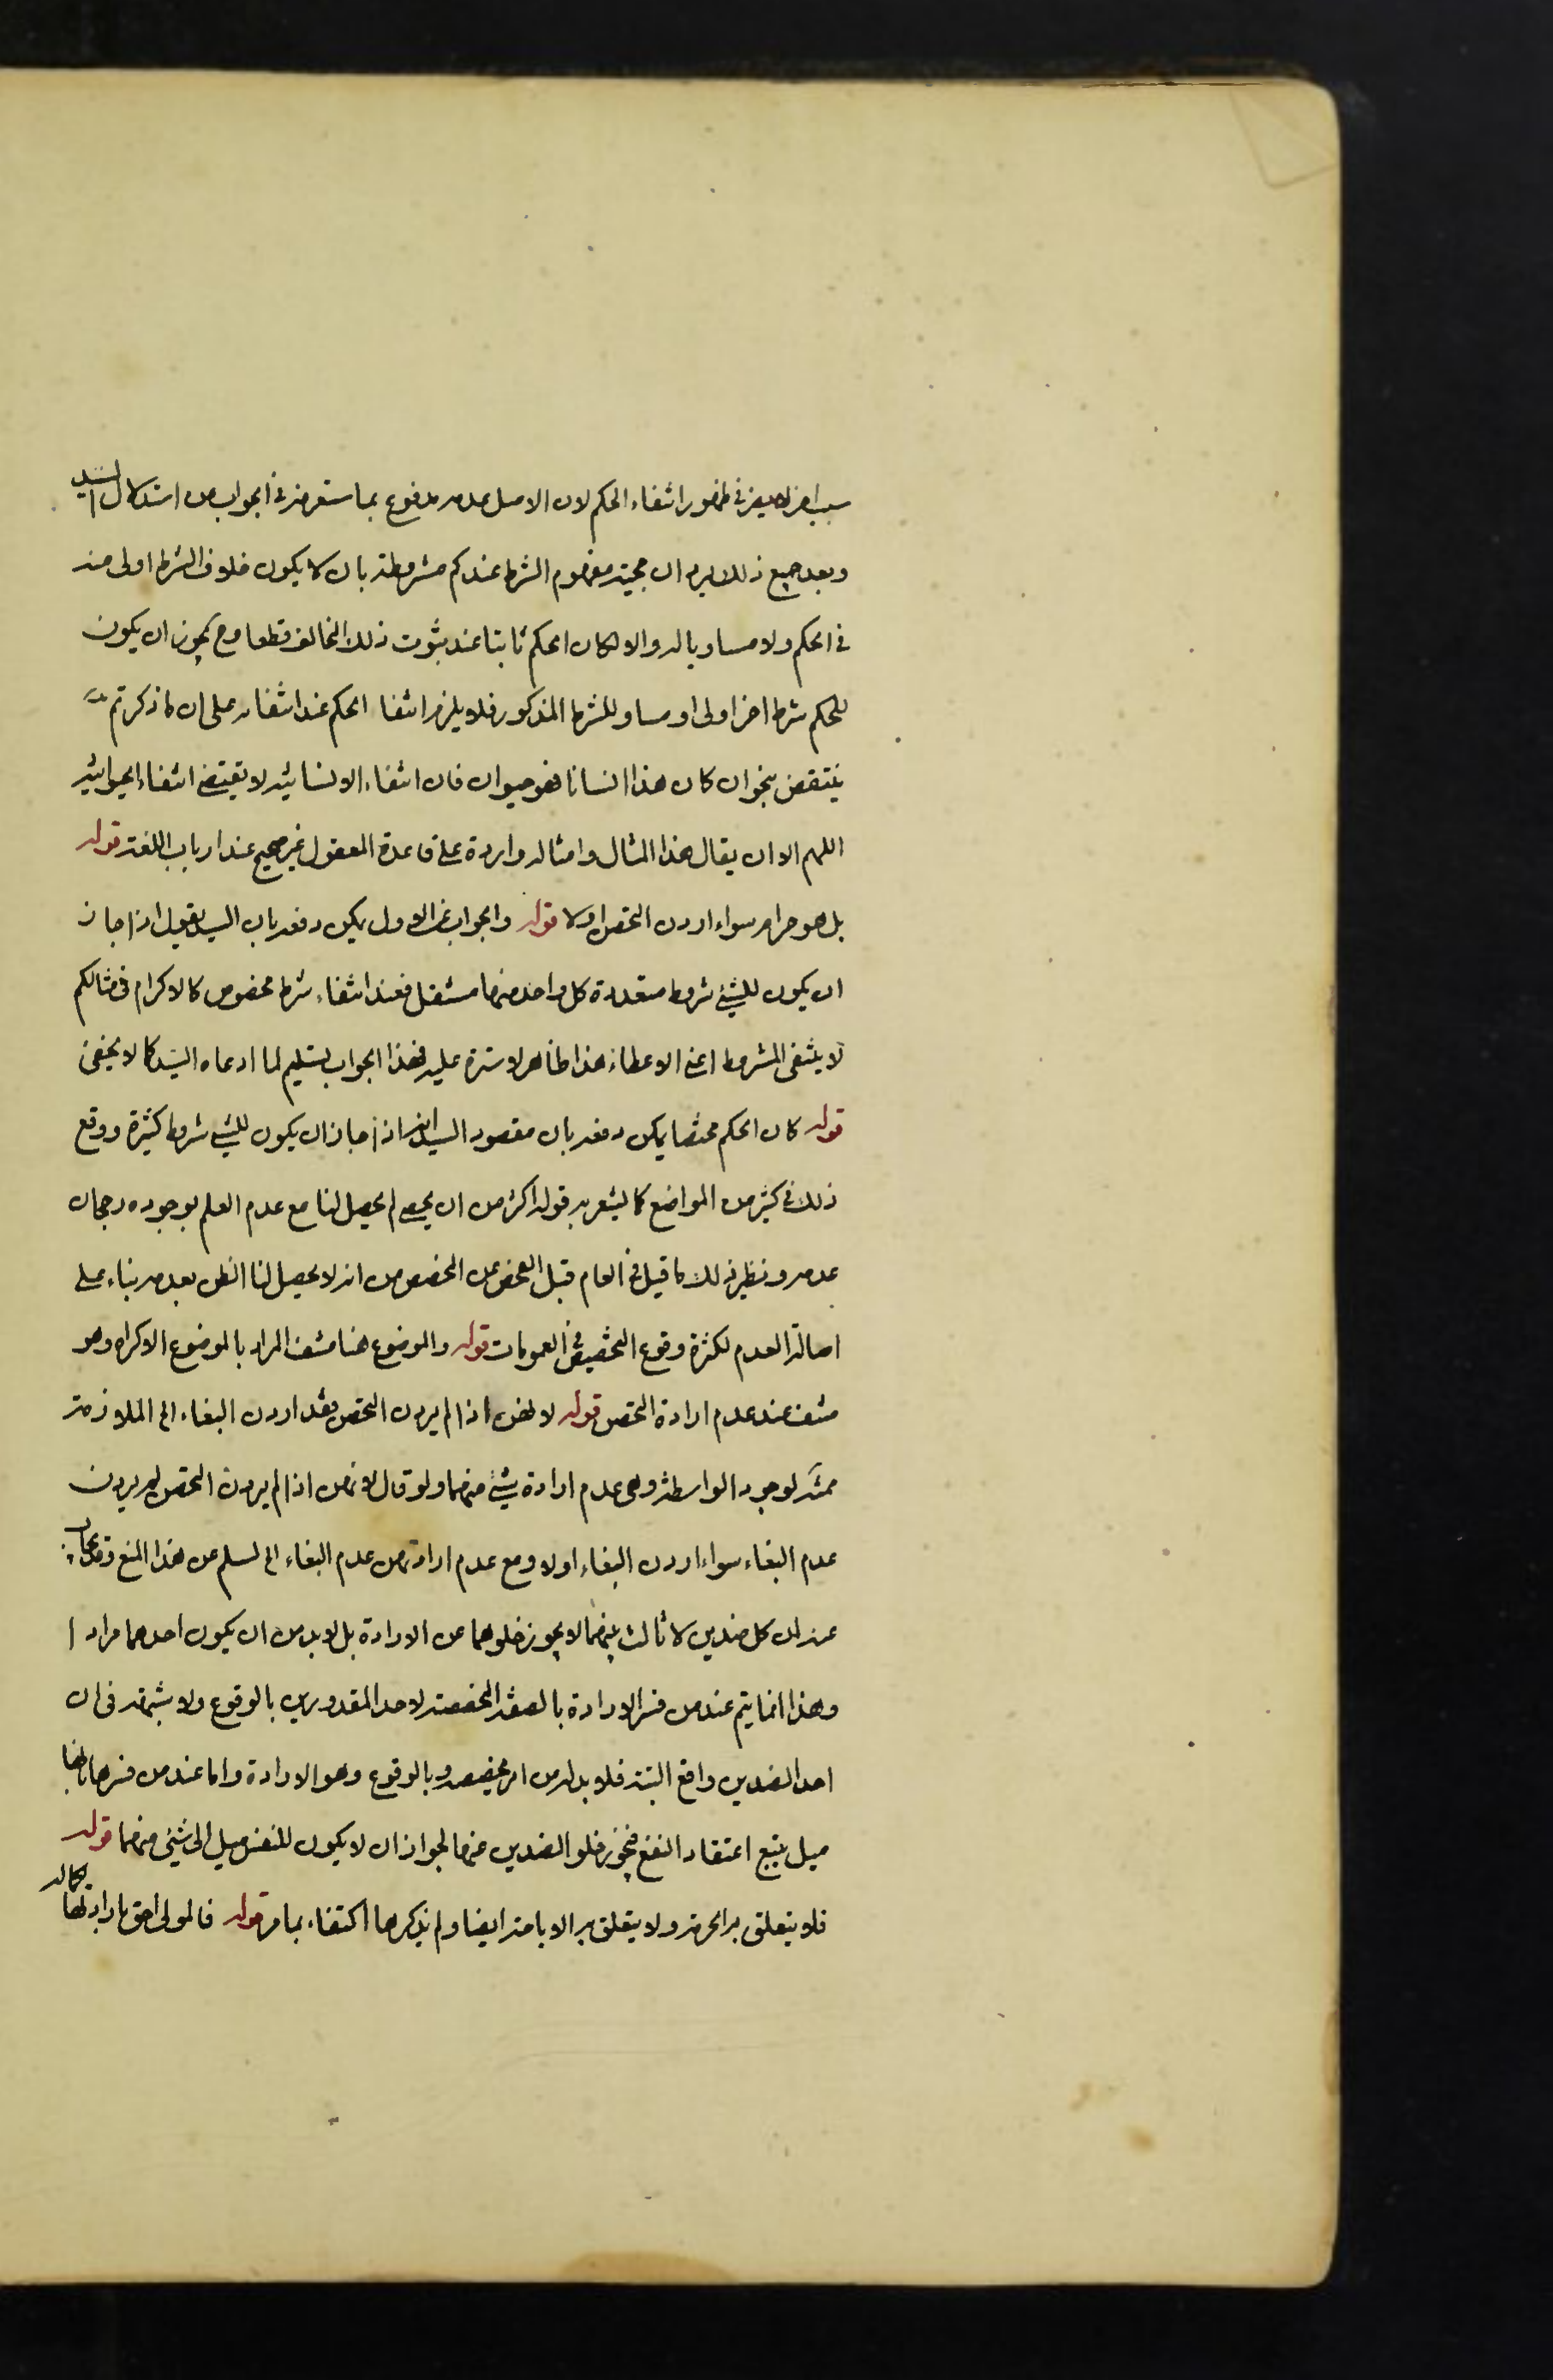 سبب اخر لا يضر في ظهور انتفاء الحكم لان الاصل عدمه مدفوع بما ستعرفه في الجواب من استدلال السيد
وبعد جميع ذلك يرد ان حجية مفهوم الشرط عندكم مشروطة بان لا يكون خلاف الشرط اولى منه
في الحكم ولا مساويا له والا لكان الحكم ثابتا عند ثبوت ذلك المخالف قطعا وح يجوز ان يكون
للحكم شرط اخر اولى او مساو للشرط المذكور فلا يلزم انتفا الحكم عند انتفائه على ان ما ذكرتم
ينتقض بنحو ان كان هذا انسانا فهو حيوان فان انتفاء الانسانية لا يقتضي انتفاء الحيوانية
اللهم الا ان يقال هذا المثال وامثاله واردة على قاعدة المعقول غير صحيح عند ارباب اللغة قوله
بل هو حرام سواء اردن التحصن او لا قوله والجواب عن الاول يمكن دفعه بان السيد يقول اذا جاز
ان يكون للشيء شروط متعددة كل واحد منها مستقل فعند انتفاء شرط مخصوص كالاكرام في مثالكم
لا ينتفي المشروط اعني الاعطاء هذا ظاهر لا سترة عليه فهذا الجواب تسليم لما ادعاه السيد كما لا يخفى
قوله كان الحكم مختصا يمكن دفعه بان مقصود السيد انه اذا جاز ان يكون للشيء شروط كثيرة ووقع
ذلك في كثير من المواضع كما يشعر به قوله اكثر من ان يحصى لم يحصل لنا مع عدم العلم بوجوده رجحان
عدمه ونظير ذلك ما قيل في العام قبل الفحص عن المخصص من انه لا يحصل لنا الظن بعدمه بناء على
اصالة العدم لكثرة وقوع التخصيص في العمومات قوله والموضوع هنا منتف المراد بالموضوع الاكراه وهو
منتف عند عدم ارادة التحصن قوله لانهن اذا لم يردن التحصن فقد اردن البغاء الخ الملازمة
ممنوعة لوجود الواسطة وهي عدم ارادة شيء منهما ولو قال لانهن اذا لم يردن التحصن لم يردن
عدم البغاء سواء اردن البغاء او لا ومع عدم ارادتهن عدم البغاء الخ لسلم عن هذا المنع وقد يجاب
عنه ان كل ضدين لا ثالث بينهما لا يجوز خلوهما عن الارادة بل لا بد من ان يكون احدهما مرادا
وهذا انما يتم عند من فسر الارادة بالصفة المخصصة لاحد المقدورين بالوقوع ولا شبهة في ان
احد الضدين واقع البتة فلا بد له من امر يخصصه بالوقوع وهو الارادة واما عند من فسرها بانها
ميل يتبع اعتقاد النفع فيجوز خلو الضدين عنها لجواز ان لا يكون للنفس ميل الى شيء منهما قوله
فلا يتعلق به الحرمة ولا يتعلق به الاباحة ايضا ولم يذكرها اكتفاء بما مر قوله فالمولى احق بارادتها